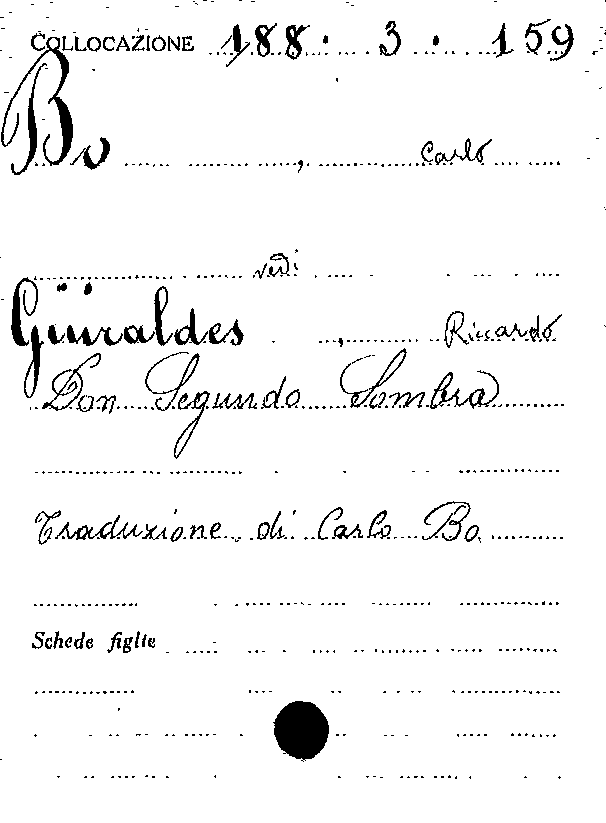 COLLOCAZIONE 188. 3. 159
Bo, Carlo
vedi
Güiraldes, Riccardo
Don Segundo Sombra
Traduzione di Carlo Bo
Schede figlie